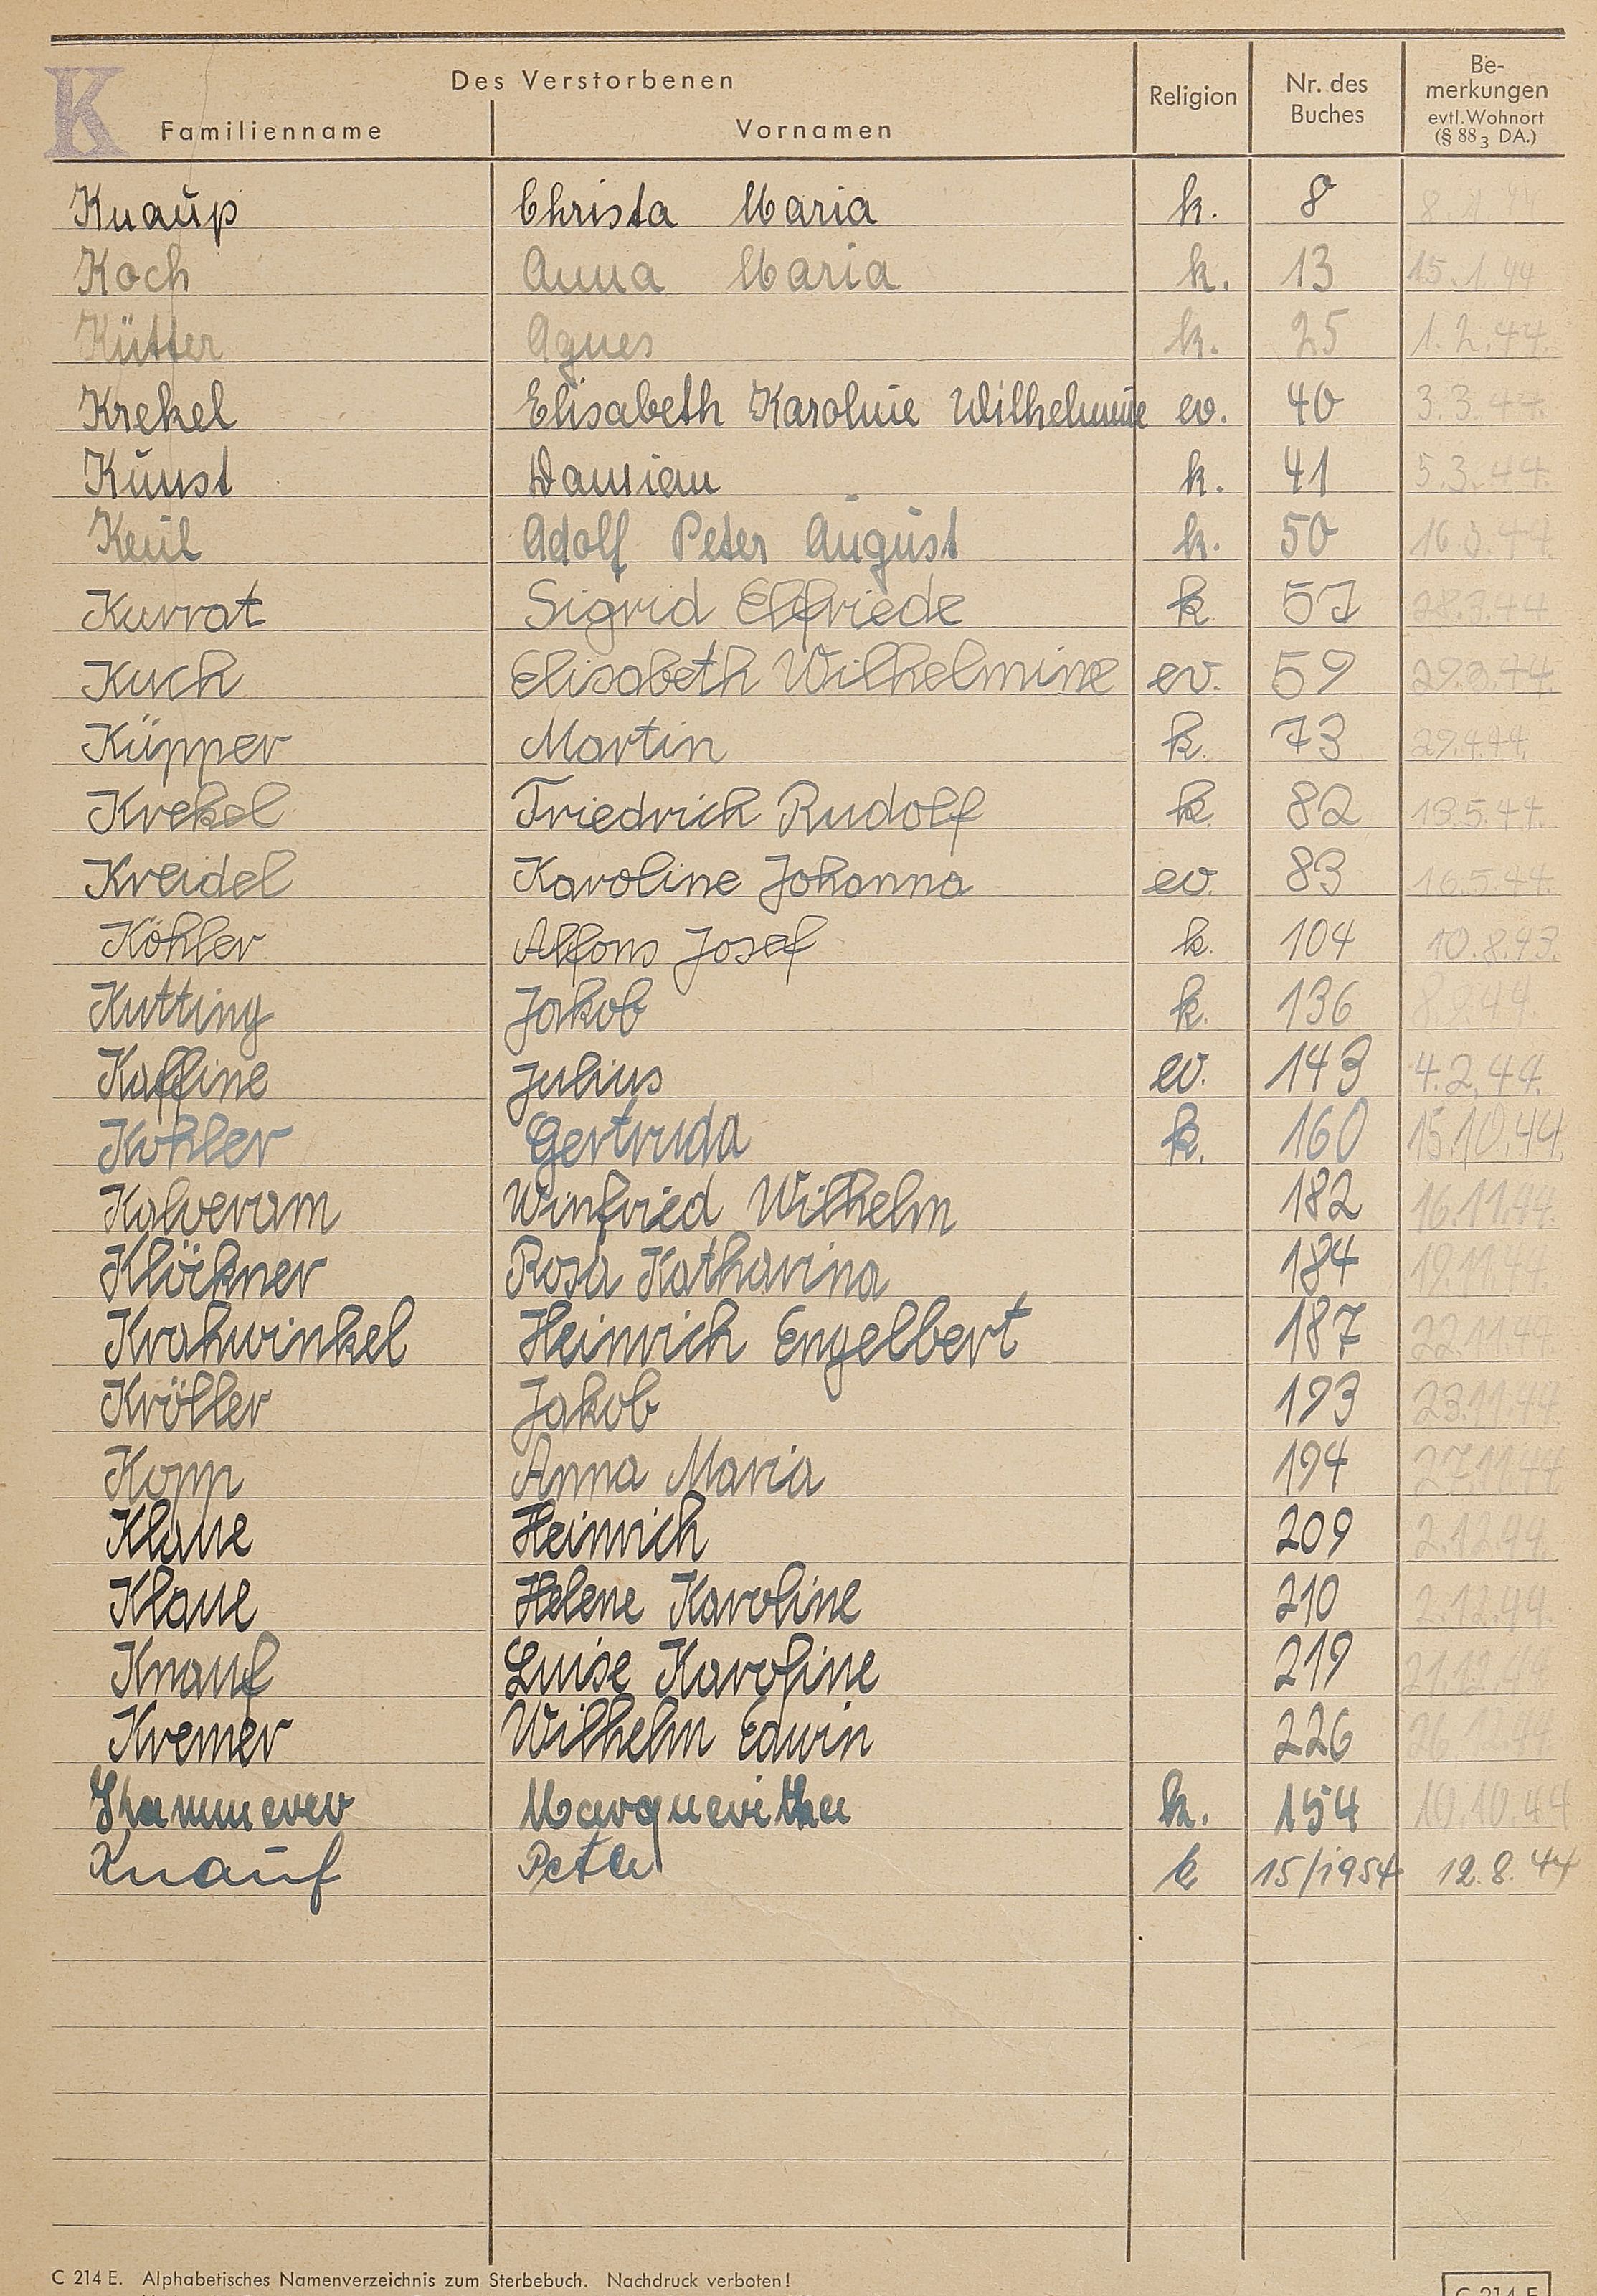 K
Des Verstorbenen
Familienname Vornamen Religion Nr. des Buches Be-merkungen evtl. Wohnort (§ 88 3 DA.)
Knaup Christa Maria k. 8
Koch Anna Maria k. 13 15.1.44
Kütter Agnes k. 25 1.2.44.
Krekel Elisabeth Karoline Wilhelmine ev. 40 3.3.44.
Kunst Damian k. 41 5.3.44.
Keul Adolf Peter August k. 50 16.3.44.
Kurrat Sigrid Elfriede k. 57 28.3.44
Kuch Elisabeth Wilhelmine ev. 59 29.3.44.
Küpper Martin k. 73 29.4.44.
Krekel Friedrich Rudolf k. 82 13.5.44.
Kreidel Karoline Johanna ev. 83 16.5.44.
Köhler Alfons Josef k. 104 10.8.43.
Kutting Jakob k. 136 8.9.44.
Kaffine Julius ev. 143 4.2.44.
Kohler Gertruda k. 160 15.10.44.
Kalveram Winfried Wilhelm 182 16.11.44.
Klöckner Rosa Katharina 184 19.11.44.
Krahwinkel Heinrich Engelbert 187 22.11.44.
Kröller Jakob 193 23.11.44.
Kopp Anna Maria 194 27.11.44
Klaue Heinrich 209 2.12.44.
Klaue Helene Karoline 210 2.12.44.
Knauf Luise Karoline 219 21.12.44
Kremer Wilhelm Edwin 226 26.12.44
Margueritha k. 154 10.10.44
Knauf Peter k 15/1954 12.8.44
C 214 E. Alphabetisches Namenverzeichnis zum Sterbebuch. Nachdruck verboten!
C 214 E